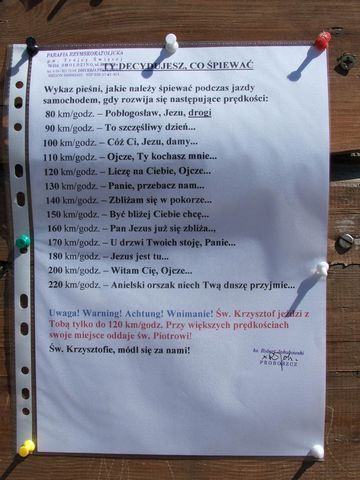 PARAFIA RZYMSKOKATOLICKA
p.w. Trójcy Świętej
TY DECYDUJESZ, CO ŚPIEWAĆ
Wykaz pieśni, jakie należy śpiewać podczas jazdy
samochodem, gdy rozwija się następujące prędkości:
80 km/godz. – Pobłogosław, Jezu, drogi
90 km/godz. – To szczęśliwy dzień...
100 km/godz. – Cóż Ci, Jezu, damy...
110 km/godz. – Ojcze, Ty kochasz mnie...
120 km/godz. – Liczę na Ciebie, Ojcze...
130 km/godz. – Panie, przebacz nam...
140 km/godz. – Zbliżam się w pokorze...
150 km/godz. – Być bliżej Ciebie chcę...
160 km/godz. – Pan Jezus już się zbliża..,
170 km/godz. – U drzwi Twoich stoję, Panie...
180 km/godz. – Jezus jest tu...
200 km/godz. – Witam Cię, Ojcze...
220 km/godz. – Anielski orszak niech Twą duszę przyjmie...
Uwaga! Warning! Achtung! Wnimanie! Św. Krzysztof jeździ z
Tobą tylko do 120 km/godz. Przy większych prędkościach
swoje miejsce oddaje św. Piotrowi!
Św. Krzysztofie, módl się za nami!
PROBOSZCZ